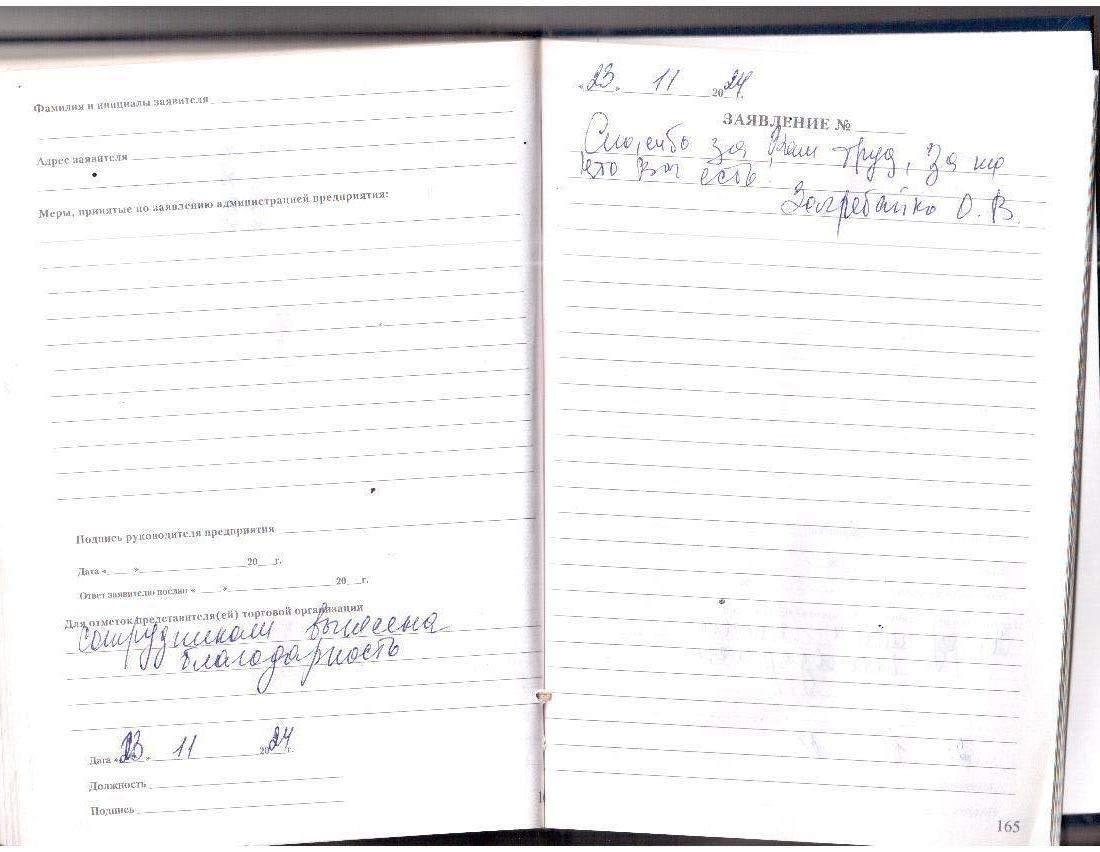 Фамилия и инициалы заявителя
Адрес заявителя
Меры, принятые по заявлению администрацией предприятия:
Подпись руководителя предприятия
Дата «____»____ 20__г.
Ответ заявителю послан «____»____ 20__г.
Для отметок представителя(ей) торговой организации
Сотрудникам вынесена
благодарность
Дата «23» 11 2024г.
Должность
Подпись
«23» 11 2024г.
ЗАЯВЛЕНИЕ №
Спасибо за Ваш труд, За то
что Вы есть!
Загребайко О.В.
165